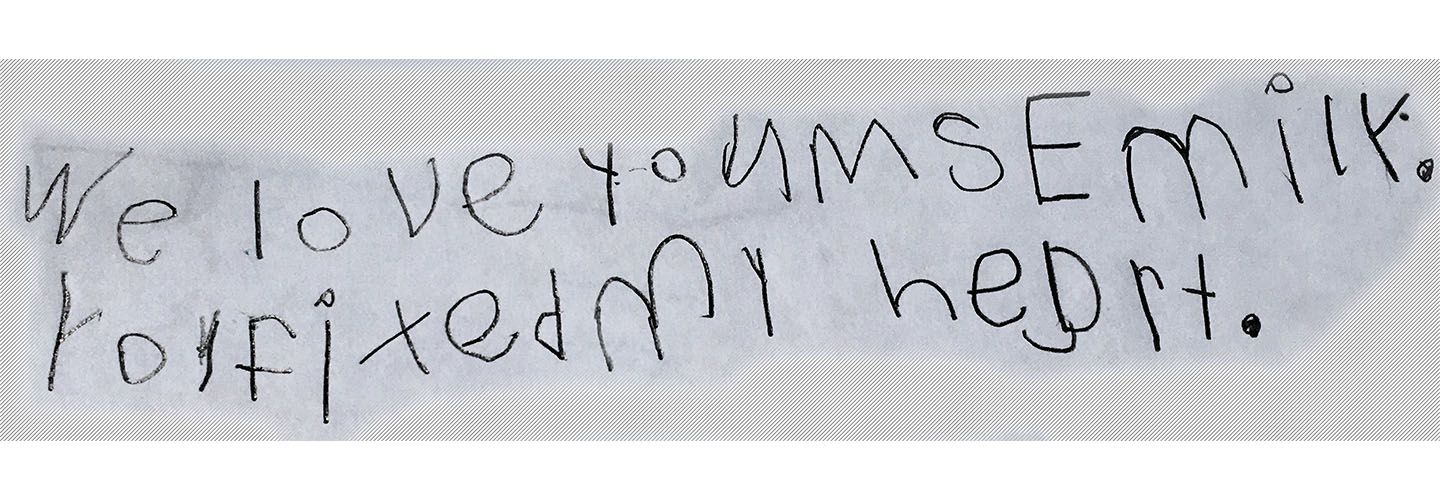 We love you ms Emily.
You Fixed My heart.